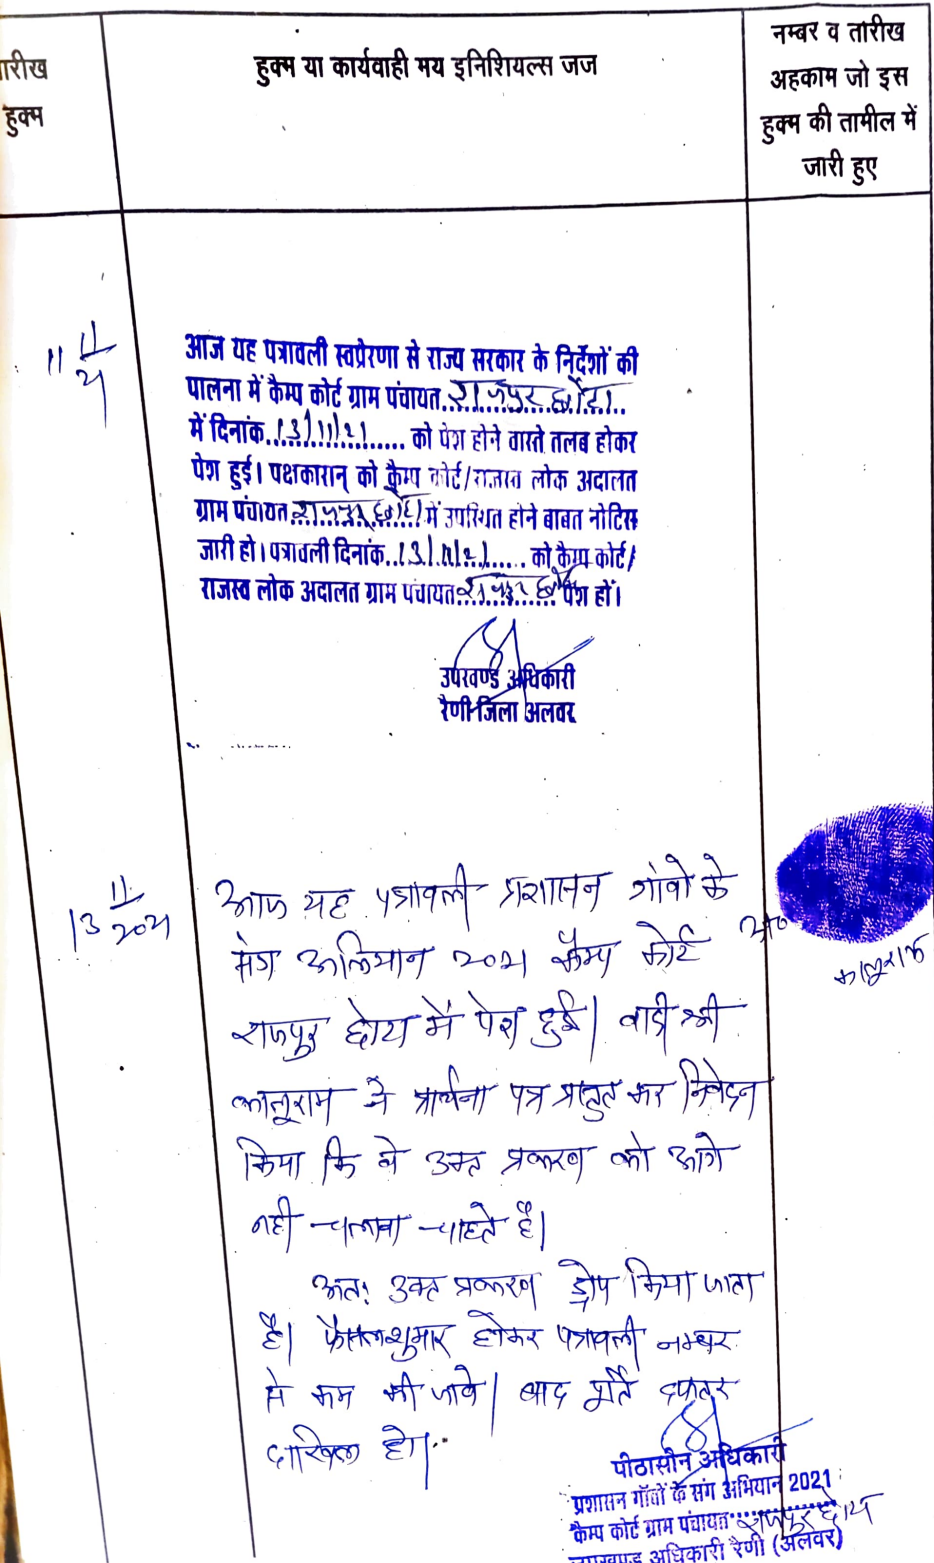 तारीख
हुक्म
हुक्म या कार्यवाही मय इनिशियल्स जज
नम्बर व तारीख
अहकाम जो इस
हुक्म की तामील में
जारी हुए
11 11/21
आज यह पत्रावली स्वप्रेरणा से राज्य सरकार के निर्देशों की
पालना में कैम्प कोर्ट ग्राम पंचायत राजपुर छोटा
में दिनांक 13/11/21 को पेश होने वास्ते तलब होकर
पेश हुई। पक्षकारान् को कैम्प कोर्ट/राजस्व लोक अदालत
ग्राम पंचायत राजपुर छोटा में उपस्थित होने बाबत नोटिस
जारी हो। पत्रावली दिनांक 13/11/21 को कैम्प कोर्ट/
राजस्व लोक अदालत ग्राम पंचायत राजपुर छोटा पेश हों।
उपखण्ड अधिकारी
रैणी जिला अलवर
13 11/2021
आज यह पत्रावली प्रशासन गांवो के
संग अभियान 2021 कैम्प कोर्ट
राजपुर छोटा में पेश हुई। वादी श्री
कालूराम ने प्रार्थना पत्र प्रस्तुत कर निवेदन
किया कि वे उक्त प्रकरण को आगे
नही चलाना चाहते है।
अतः उक्त प्रकरण ड्रोप किया जाता
है। फैसलशुमार होकर पत्रावली नम्बर
से कम की जावे। बाद पूर्ति दफ्तर
दाखिल हो।
कालूराम
पीठासीन अधिकारी
प्रशासन गॉवों के संग अभियान 2021
कैम्प कोर्ट ग्राम पंचायत राजपुर छोटा
उपखण्ड अधिकारी रैणी (अलवर)